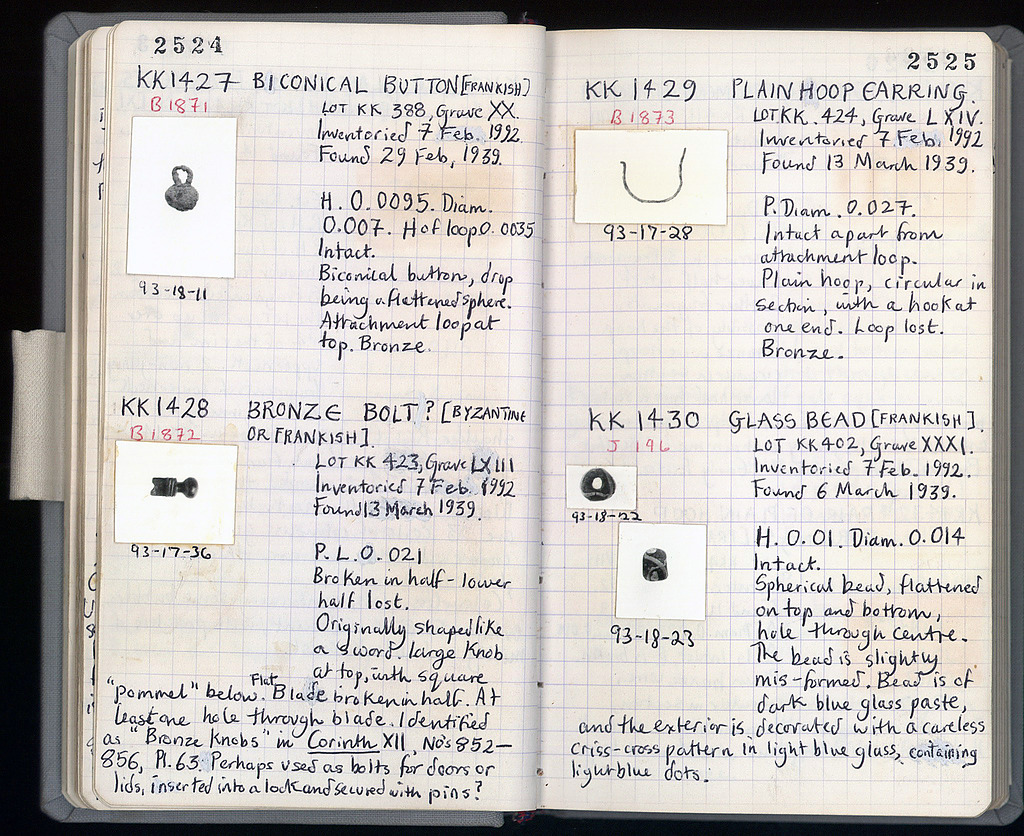 2524
KK1427 BICONICAL BUTTON[FRANKISH]
B 1871
LOT KK 388, Grave XX.
Inventoried 7 Feb. 1992.
Found 29 Feb, 1939.
H. 0.0095. Diam.
0.007. H of loop 0.0035
Intact.
Biconical button, drop
being a flattened sphere.
Attachment loop at
top. Bronze.
93-18-11
KK1428 BRONZE BOLT? [BYZANTINE
OR FRANKISH].
B 1872
LOT KK 423, Grave LXIII
Inventoried 7 Feb. 1992
Found 13 March 1939.
P.L.0.021
Broken in half - lower
half lost.
Originally shaped like
a sword. large knob
at top, with square
"pommel" below. Flat Blade broken in half. At
least one hole through blade. Identified
as "Bronze Knobs" in Corinth XII, No's 852-
856, Pl. 63. Perhaps used as bolts for doors or
lids, inserted into a lock and secured with pins?
93-17-36
2525
KK 1429 PLAIN HOOP EARRING.
B 1873
LOT KK. 424, Grave LXIV.
Inventoried 7 Feb. 1992
Found 13 March 1939.
P. Diam. 0.027.
Intact apart from
attachment loop.
Plain hoop, circular in
section, with a hook at
one end. Loop lost.
Bronze.
93-17-28
KK 1430 GLASS BEAD [FRANKISH].
J 196
LOT KK402, Grave XXXI.
Inventoried 7 Feb. 1992.
Found 6 March 1939.
H. 0.01. Diam. 0.014
Intact.
Spherical bead, flattened
on top and bottom,
hole through centre.
The bead is slightly
mis-formed. Bead is of
dark blue glass paste,
and the exterior is decorated with a careless
criss-cross pattern in light blue glass, containing
light blue dots.
93-18-22
93-18-23